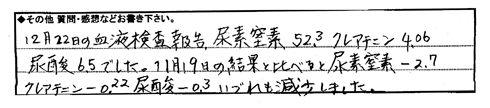 ◆その他 質問・感想などお書き下さい。
12月22日の血液検査報告 尿素窒素 52.3 クレアチニン 4.06
尿酸 6.5でした。11月19日の結果と比べると尿素窒素 -2.7
クレアチニン-0.22 尿酸-0.3 いづれも減少しました。